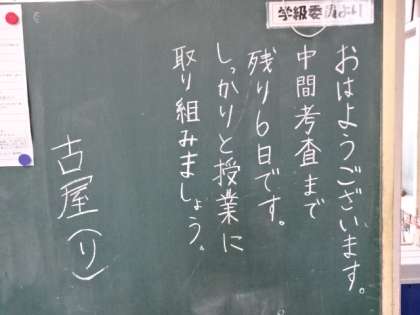 学級委員より
おはようございます。
中間考査まで
残り6日です。
しっかりと授業に
取り組みましょう。
古屋(り)